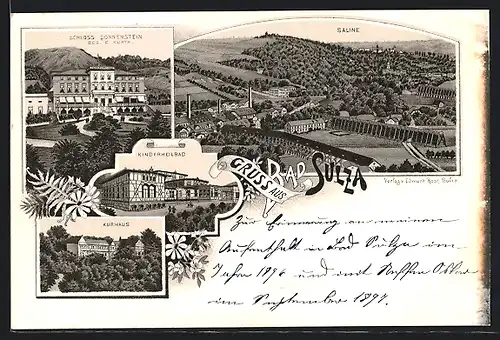 SCHLOSS SONNENSTEIN
BES. E. KURTH.
SALINE
KINDERHEILBAD
GRUSS AUS
BAD SULZA
Verlag v. Rost, Sulza
KURHAUS
Zur Erinnerung an meinen
Aufenthalt in Bad Sulza im
Jahre 1896 und mit
im September 1897.